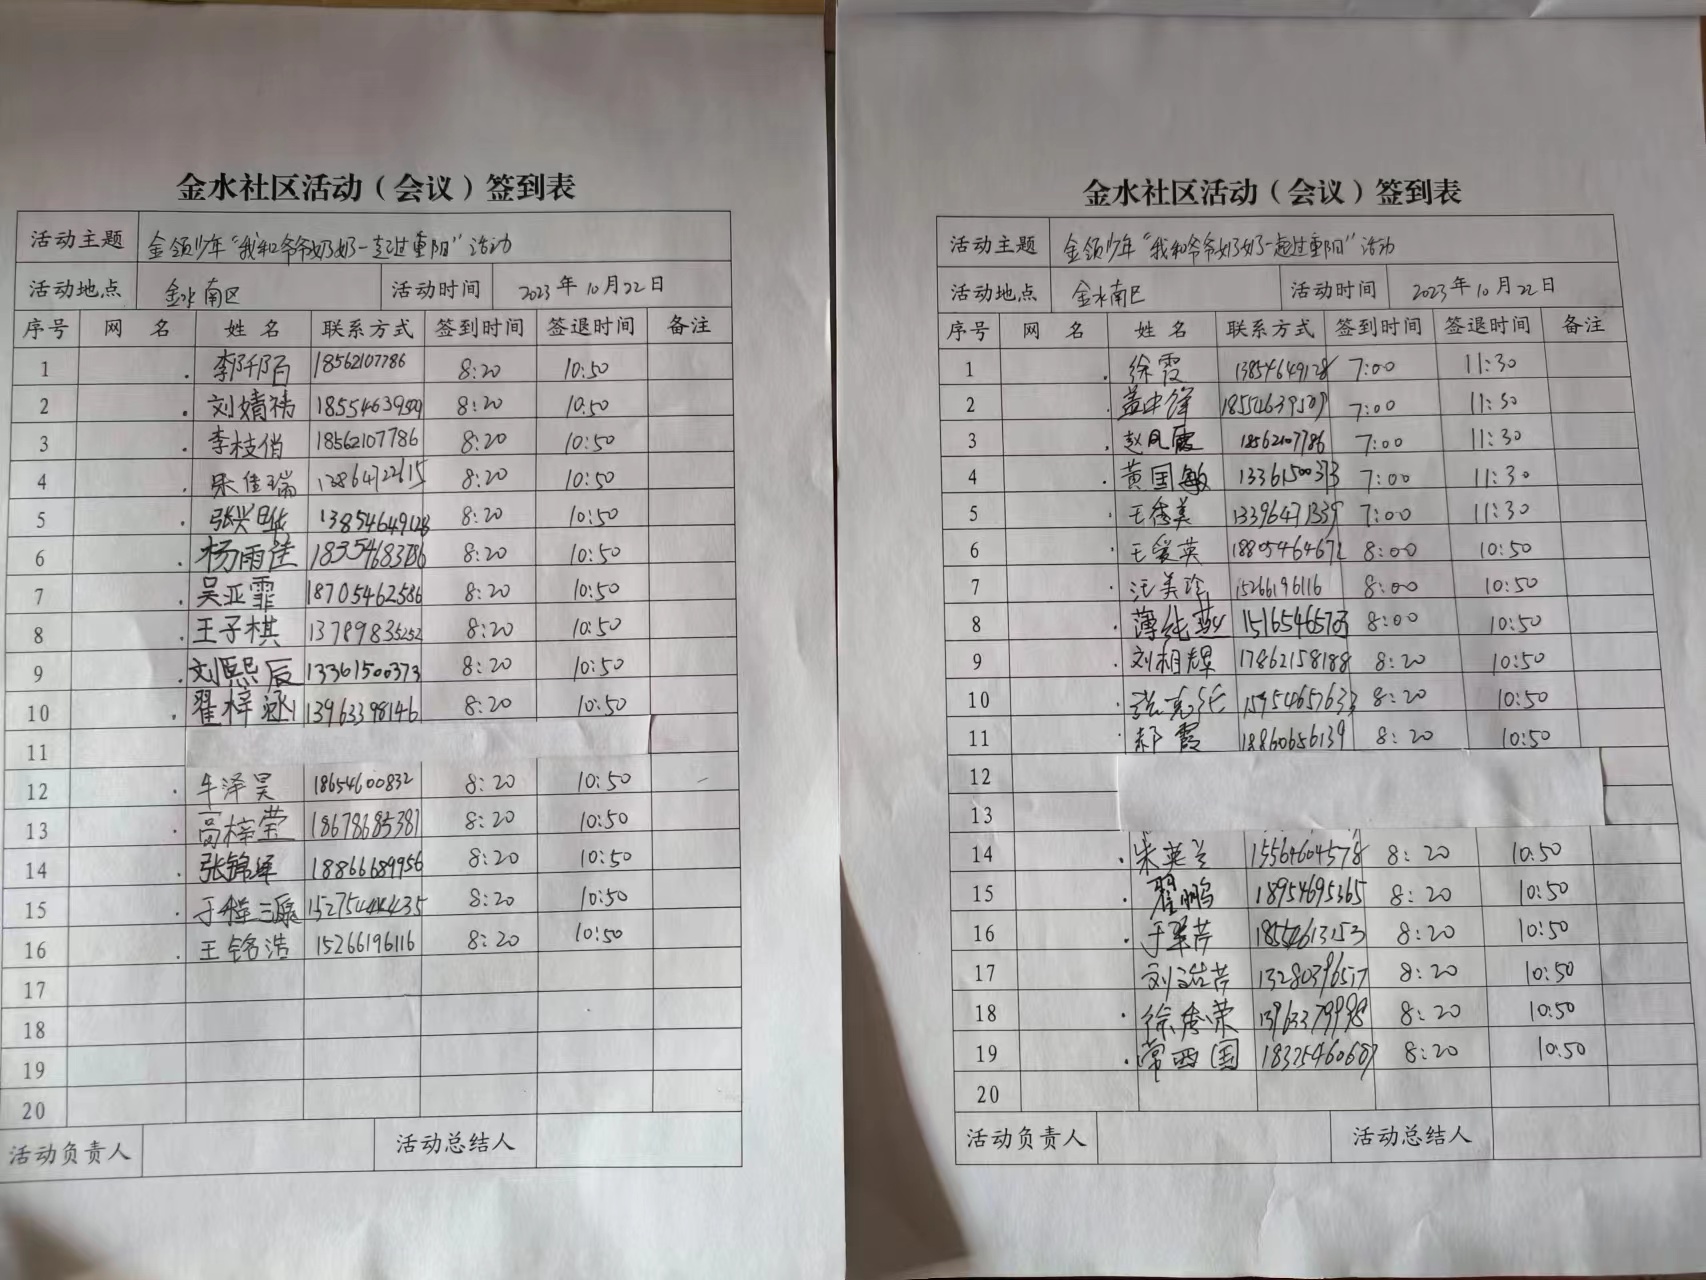 金水社区活动（会议）签到表
活动主题 金领少年“我和爷爷奶奶一起过重阳”活动
活动地点 金水南区 活动时间 2023年10月22日
序号 网 名 姓 名 联系方式 签到时间 签退时间 备注
1 18562107786 8:20 10:50
2 刘婧祎 18554639509 8:20 10:50
3 李枝俏 18562107786 8:20 10:50
4 宋佳瑞 13864722615 8:20 10:50
5 13854649128 8:20 10:50
6 杨雨佳 8:20 10:50
7 吴亚霏 18705462586 8:20 10:50
8 王子棋 13789835252 8:20 10:50
9 刘熙辰 13361500373 8:20 10:50
10 翟梓涵 13963398146 8:20 10:50
11
12 牛泽昊 18654600832 8:20 10:50
13 高梓莹 18678685381 8:20 10:50
14 18866689956 8:20 10:50
15 8:20 10:50
16 王铭浩 15266196116 8:20 10:50
17
18
19
20
活动负责人 活动总结人
金水社区活动（会议）签到表
活动主题 金领少年“我和爷爷奶奶一起过重阳”活动
活动地点 金水南区 活动时间 2023年10月22日
序号 网 名 姓 名 联系方式 签到时间 签退时间 备注
1 徐霞 13854649128 7:00 11:30
2 盖中锋 18554639509 7:00 11:30
3 赵凤霞 18562107786 7:00 11:30
4 黄国敏 13361500373 7:00 11:30
5 王秀美 13396471339 7:00 11:30
6 王爱英 18805464672 8:00 10:50
7 汪美玲 15266196116 8:00 10:50
8 薄纯燕 8:00 10:50
9 刘相辉 17862158188 8:20 10:50
10 15954657633 8:20 10:50
11 郝霞 18860656139 8:20 10:50
12
13
14 朱英兰 15564604578 8:20 10:50
15 翟鹏 18954695365 8:20 10:50
16 18554613153 8:20 10:50
17 13280396517 8:20 10:50
18 徐秀荣 13963379998 8:20 10:50
19 常西国 18325460607 8:20 10:50
20
活动负责人 活动总结人